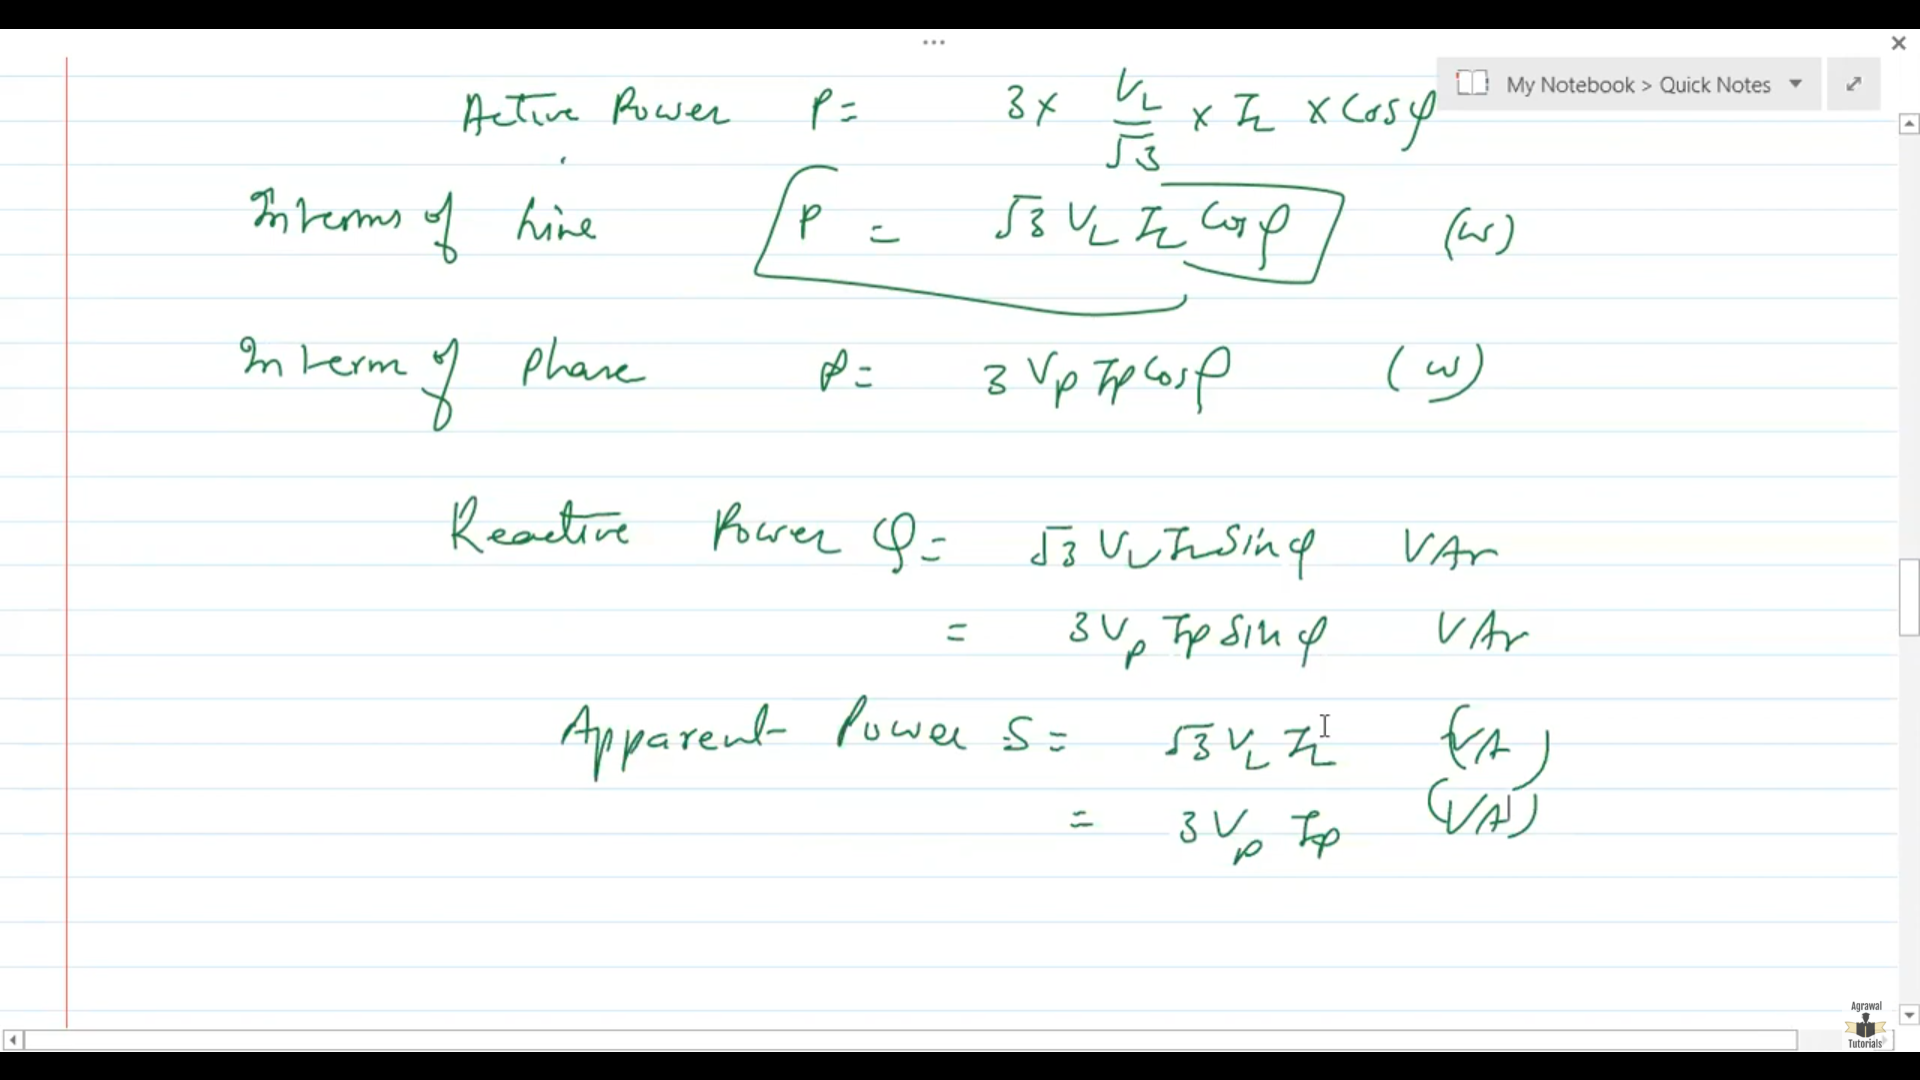 ...
My Notebook > Quick Notes
Active Power P = 3 x V_L/√3 x I_L x Cosφ
Interms of Line P = √3 V_L I_L Cosφ (W)
In term of Phase P = 3 V_p I_p Cosφ (W)
Reactive Power Q = √3 V_L I_L Sinφ VAr
= 3 V_p I_p Sinφ VAr
Apparent Power S = √3 V_L I_L (VA)
= 3 V_p I_p (VA)
Agrawal
Tutorials